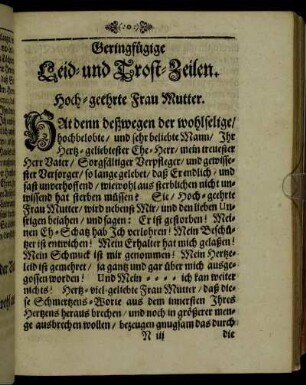 Geringfügige
Leid- und Trost-Zeilen.
Hoch-geehrte Frau Mutter.
HAt denn deßwegen der wohlselige/
hochbelobte/ und sehr beliebte Mann/ Ihr
Hertz-geliebtester Ehe-Herr/ mein treuester
Herr Vater/ Sorgfältiger Verpfleger/ und gewisse-
ster Versorger/ so lange gelebet/ daß Er endlich/ und
fast unverhoffend/ wiewohl aus sterblichen nicht un-
wissend hat sterben müssen? Sie/ Hoch-geehrte
Frau Mutter/ wird nebenst Mir/ und den lieben Un-
srigen bejahen/ und sagen: Er ist gestorben! Mei-
nen Eh-Schatz hab Ich verlohren! Mein Beschü-
tzer ist entwichen! Mein Erhalter hat mich gelaßen!
Mein Schmuck ist mir genommen! Mein Hertze-
leid ist gemehret/ ja gantz und gar über mich ausge-
gossen worden! Und Mein = = = = ich kan weiter
nichts! Hertz-viel-geliebte Frau Mutter/ daß die-
se Schmertzens-Worte aus dem innersten Ihres
Hertzens heraus brechen/ und noch in größerer men-
ge ausbrechen wollen/ bezeugen gnugsam das durch
N iij die